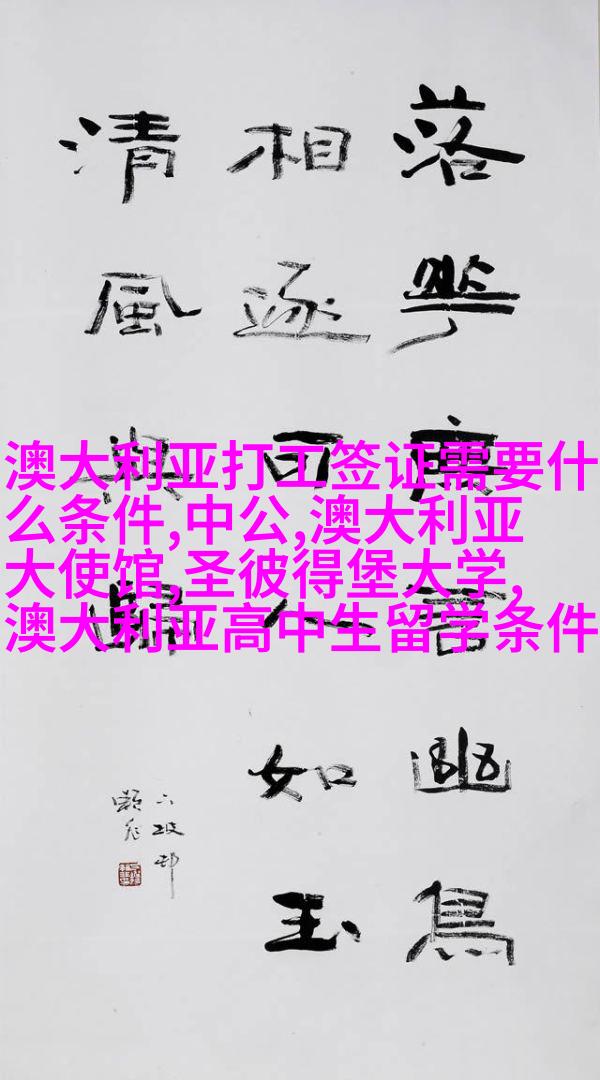 落華無言幽鳥
相逐可人如玉
清風與歸
澳大利亚打工签证需要什
么条件,中公,澳大利亚
大使馆,圣彼得堡大学,
澳大利亚高中生留学条件